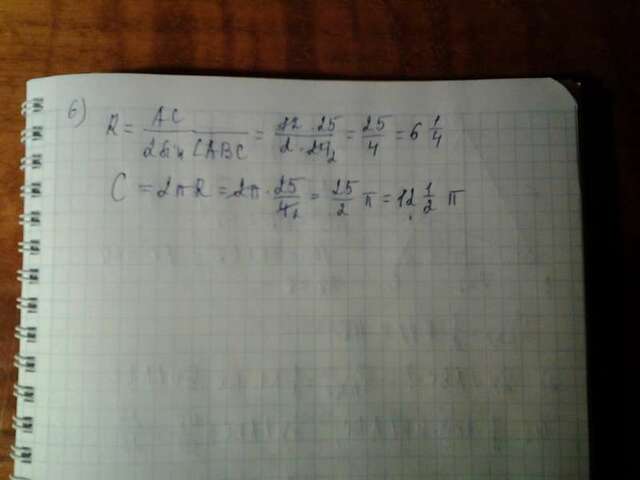 6)
R = AC / 2sin∠ABC = 12·25 / 2·24₂ = 25/4 = 6 1/4
C = 2πR = 2π·25/4₂ = 25/2 π = 12 1/2 π